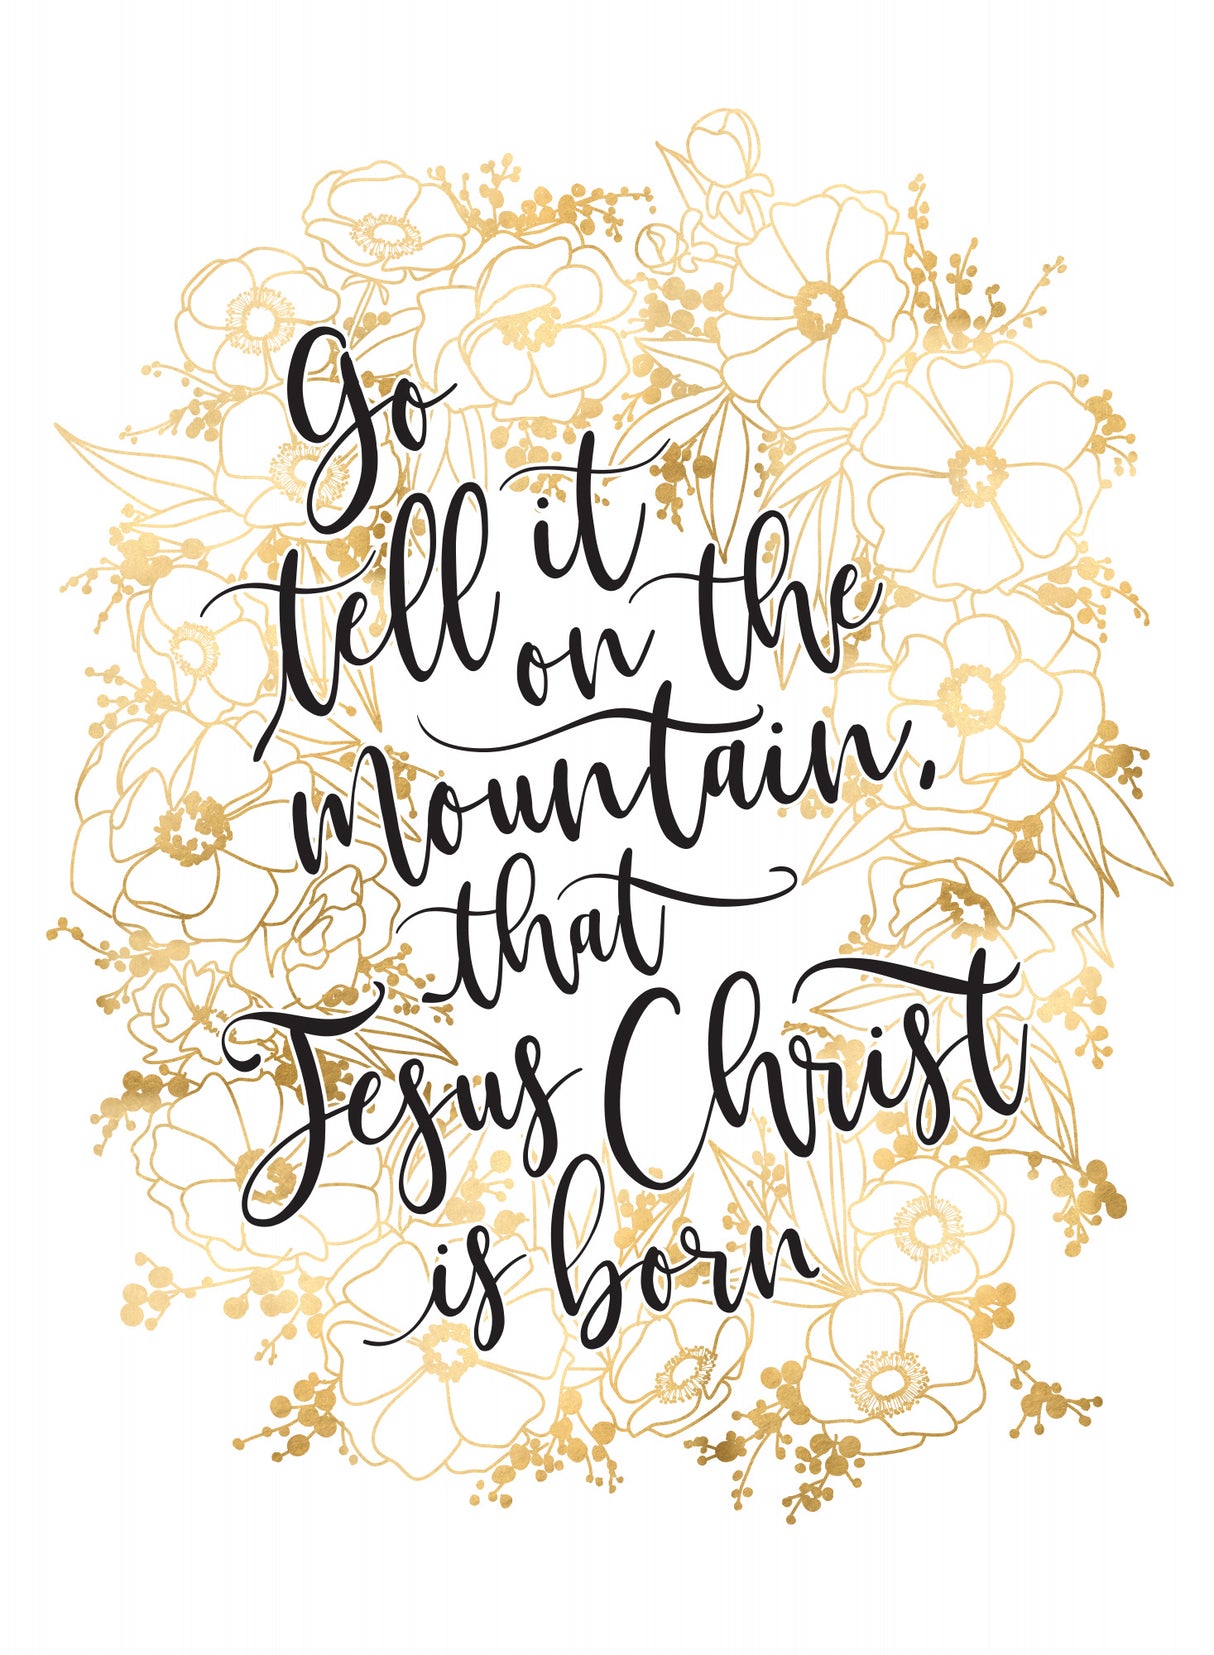 Go
tell it
on the
mountain,
that
Jesus Christ
is born